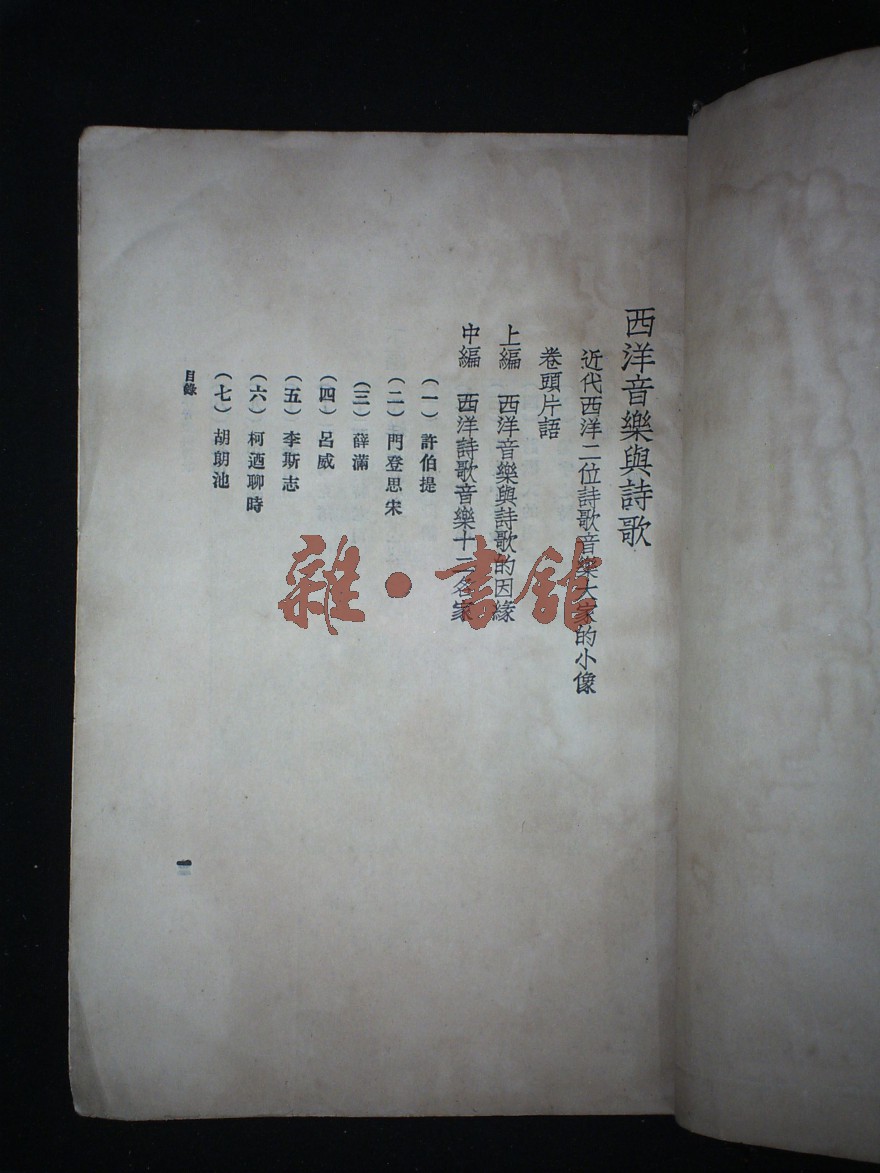 西洋音樂與詩歌
近代西洋二位詩歌音樂大家的小像
卷頭片語
上編 西洋音樂與詩歌的因緣
中編 西洋詩歌音樂十二名家
(一)許伯提
(二)門登思宋
(三)薛滿
(四)呂威
(五)李斯志
(六)柯迺聊時
(七)胡朗池
目錄
一
雜·書館